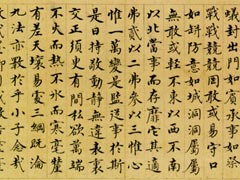 蟻封出門如賓承事如祭
戰戰兢兢罔敢或易守口
如瓶防意如城洞洞屬屬
無敢或輕不東以西不南
以北當事而存靡它其適
弗貳以二弗參以三惟心
惟一萬變是監從事於斯
是曰持敬動靜無違表裏
交正須臾有間私欲萬端
不火而熱不冰而寒毫釐
有差天壤易處三綱既淪
九法亦斁於乎小子念哉